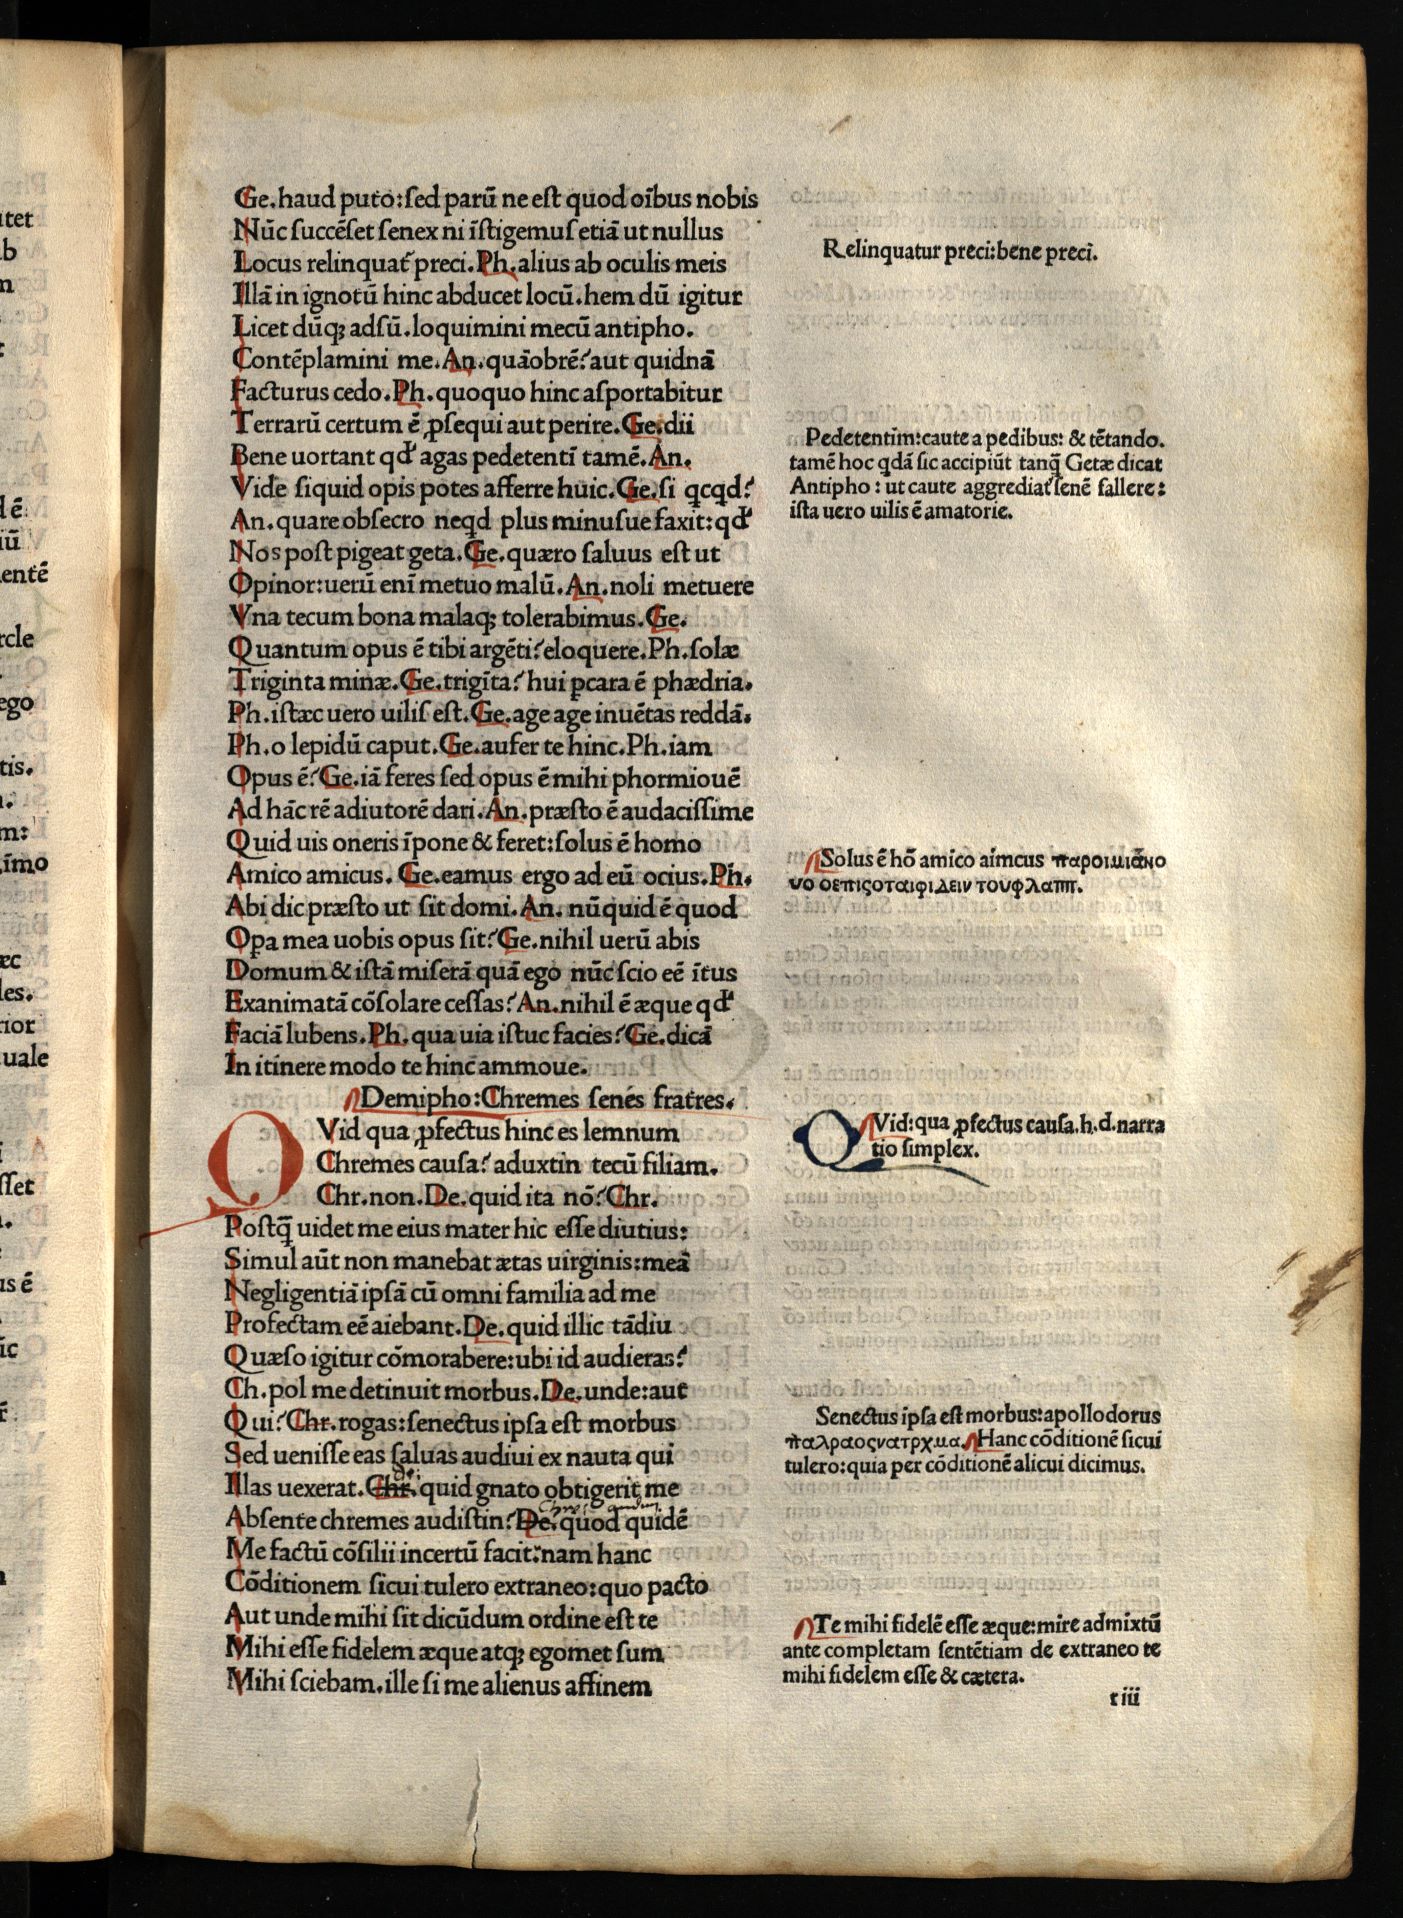 Ge.haud puto:ſed parū ne eſt quod oībus nobis
Nūc ſuccēſet ſenex ni īſtigemuſ etiā ut nullus
Locus relinquat᷑ preci.Ph.alius ab oculis meis
Illā in ignotū hinc abducet locū.hem dū igitur
Licet dūqꝫ adſū.loquimini mecū antipho.
Contēplamini me.An.quāobrē?aut quidnā
Facturus cedo.Ph.quoquo hinc aſportabitur
Terrarū certum ē ꝓſequi aut perire.Ge.dii
Bene uortant qđ agas pedetentī tamē.An.
Vide ſiquid opis potes afferre huic.Ge.ſi qcqd?
An.quare obſecro neqd plus minuſue faxit:qđ
Nos poſt pigeat geta.Ge.quæro ſaluus eſt ut
Opinor:uerū enī metuo malū.An.noli metuere
Vna tecum bona malaqꝫ tolerabimus.Ge.
Quantum opus ē tibi argēti?eloquere.Ph.ſolæ
Triginta minæ.Ge.trigīta?hui ꝑcara ē phædria.
Ph.iſtæc uero uiliſ eſt.Ge.age age inuētas reddā.
Ph.o lepidū caput.Ge.aufer te hinc.Ph.iam
Opus ē?Ge.iā feres ſed opus ē mihi phormiouē
Ad hāc rē adiutorē dari.An.præſto ē audaciſſime
Quid uis oneris īpone & feret:ſolus ē homo
Amico amicus.Ge.eamus ergo ad eū ocius.Ph.
Abi dic præſto ut ſit domi.An.nūquid ē quod
Opa mea uobis opus ſit?Ge.nihil uerū abis
Domum & iſtā miſerā quā ego nūc ſcio eē ītus
Exanimatā cōſolare ceſſas?An.nihil ē æque qđ
Faciā lubens.Ph.qua uia iſtuc facies?Ge.dicā
In itinere modo te hinc ammoue.
Demipho:Chremes ſenes fratres.
QVid qua ꝓfectus hinc es lemnum
Chremes cauſa?aduxtin tecū filiam.
Chr.non.De.quid ita nō?Chr.
Poſtq̄ uidet me eius mater hic eſſe diutius:
Simul aūt non manebat ætas uirginis:meā
Negligentiā ipſā cū omni familia ad me
Profectam eē aiebant.De.quid illic tādiu
Quæſo igitur cōmorabere:ubi id audieras?
Ch.pol me detinuit morbus.De.unde:aut
Qui?Chr.rogas:ſenectus ipſa eſt morbus
Sed ueniſſe eas ſaluas audiui ex nauta qui
de:
Illas uexerat.Chr.quid gnato obtigerit me
Abſente chremes audiſtin?De.quod quidē
Me factū cōſilii incertū facit:nam hanc
Cōditionem ſicui tulero extraneo:quo pacto
Aut unde mihi ſit dicūdum ordine eſt te
Mihi eſſe fidelem æque atqꝫ egomet ſum
Mihi ſciebam.ille ſi me alienus affinem
Relinquatur preci:bene preci.
Pedetentim:caute a pedibus: & tētando.
tamē hoc qdā ſic accipiūt tanq̄ Getæ dicat
Antipho:ut caute aggrediat᷑ ſenē fallere:
iſta uero uilis ē amatorie.
Solus ē hō amico aimcus παροιμιᾶνο
υο οεπιςοταιφιδειν τουφλαππ.
QVid:qua ꝓfectus cauſa.h.d.narra
tio ſimplex.
Senectus ipſa eſt morbus:apollodorus
παλραοςνατρχμα.Hanc cōditionē ſicui
tulero:quia per cōditionē alicui dicimus.
Te mihi fidelē eſſe æque:mire admixtū
ante completam ſentētiam de extraneo te
mihi fidelem eſſe & cætera.
r iii